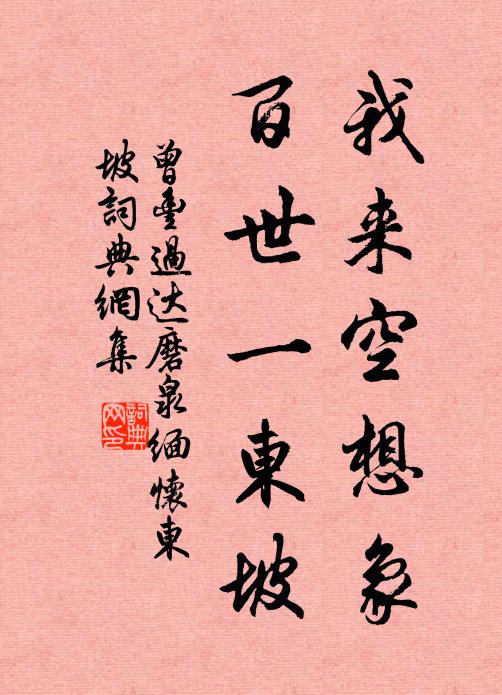 我来空想象
百世一東坡
曾豊過达磨泉缅懷東
坡詞典網集
詞典
网印